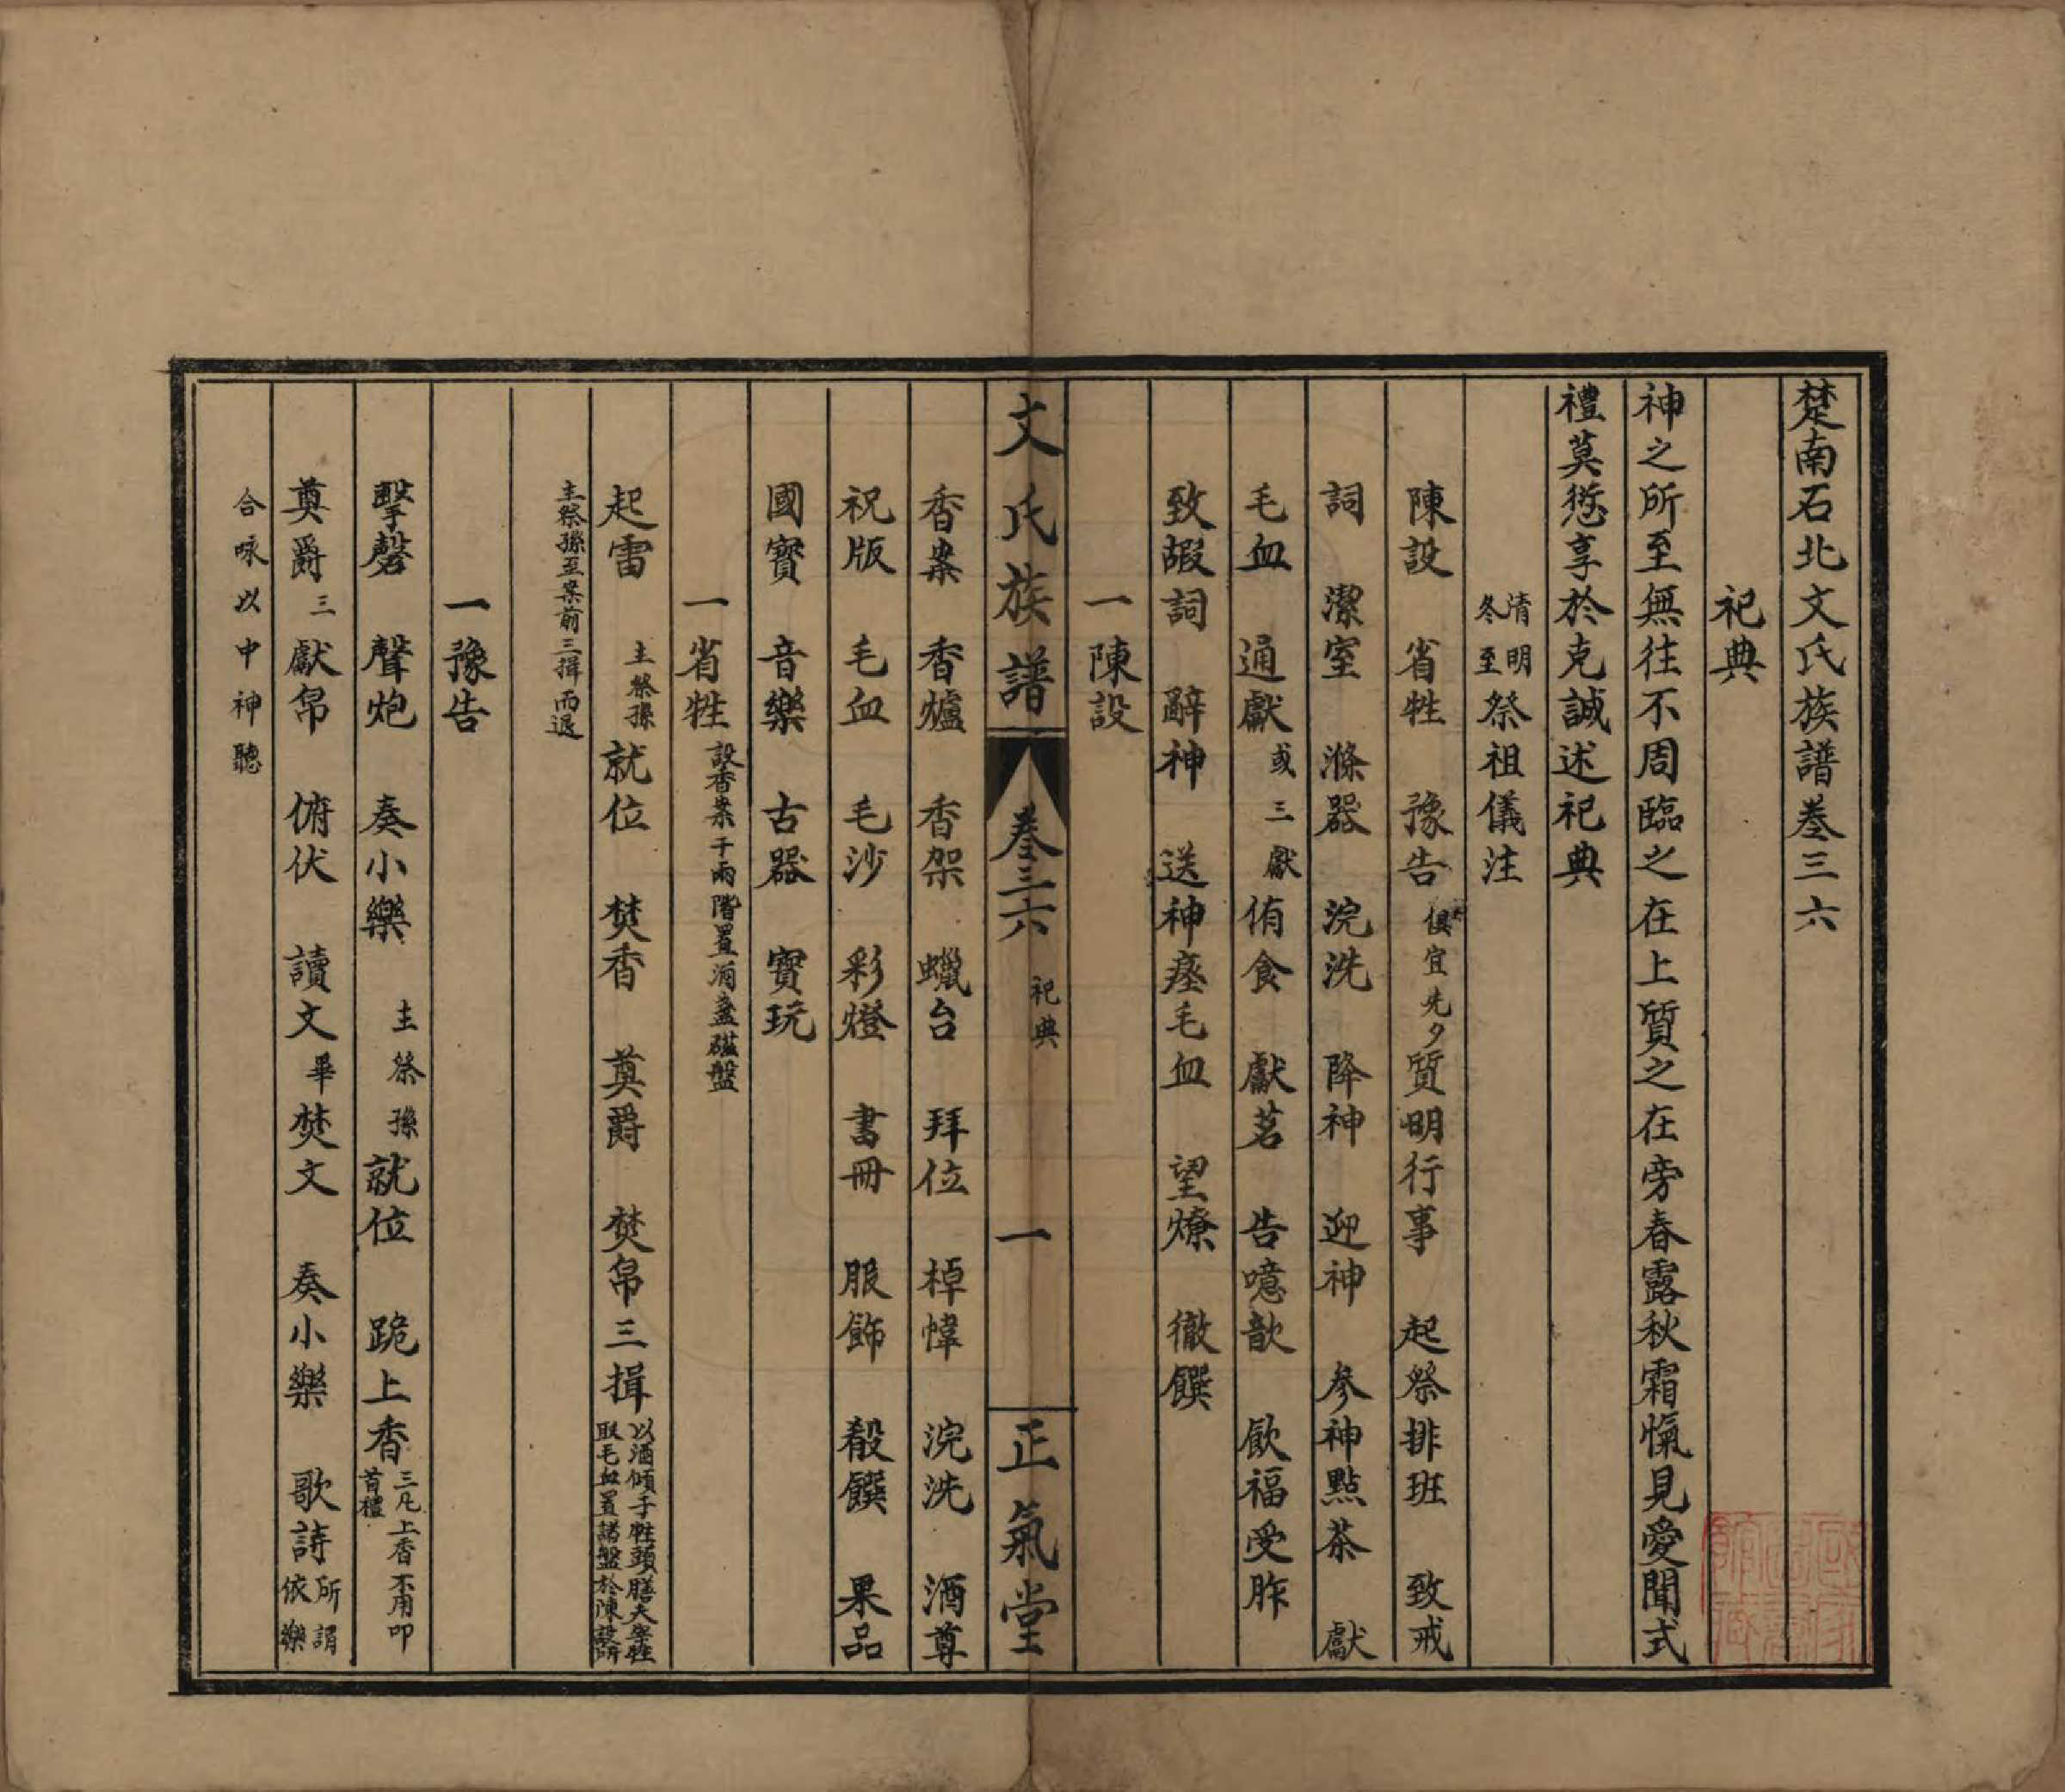 楚南石北文氏族譜卷三六
祀典
神之所至無往不周臨之在上質之在旁春露秋霜愾見愛聞式
禮莫愆享於克誠述祀典
清明冬至祭祖儀注
陳設 省牲 豫告俱宜先夕質明行事 起祭排班 致戒
詞 潔室 滌器 浣洗 降神 迎神 參神點茶 獻
毛血 通獻或三獻侑食 獻茗 告噫歆 飲福受胙
致嘏詞 辭神 送神瘞毛血 望燎 徹饌
一陳設
文氏族譜 卷三六 祀典 一 正氣堂
香案 香爐 香架 蠟台 拜位 棹幃 浣洗 酒尊
祝版 毛血 毛沙 彩燈 書冊 服飾 殽饌 果品
國寶 音樂 古器 寶玩
一省牲設香案于兩階置酒盞磁盤
起雷 主祭孫就位 焚香 奠爵 焚帛三揖以酒傾于牲頭膳夫宰牲取毛血置諸盤於陳設所
主祭孫至案前三揖而退
一豫告
擊磬 聲炮 奏小樂 主祭孫就位 跪上香三凡上香不用叩首禮
奠爵三獻帛 俯伏 讀文畢焚文 奏小樂 歌詩所謂依樂
合咏以中神聽